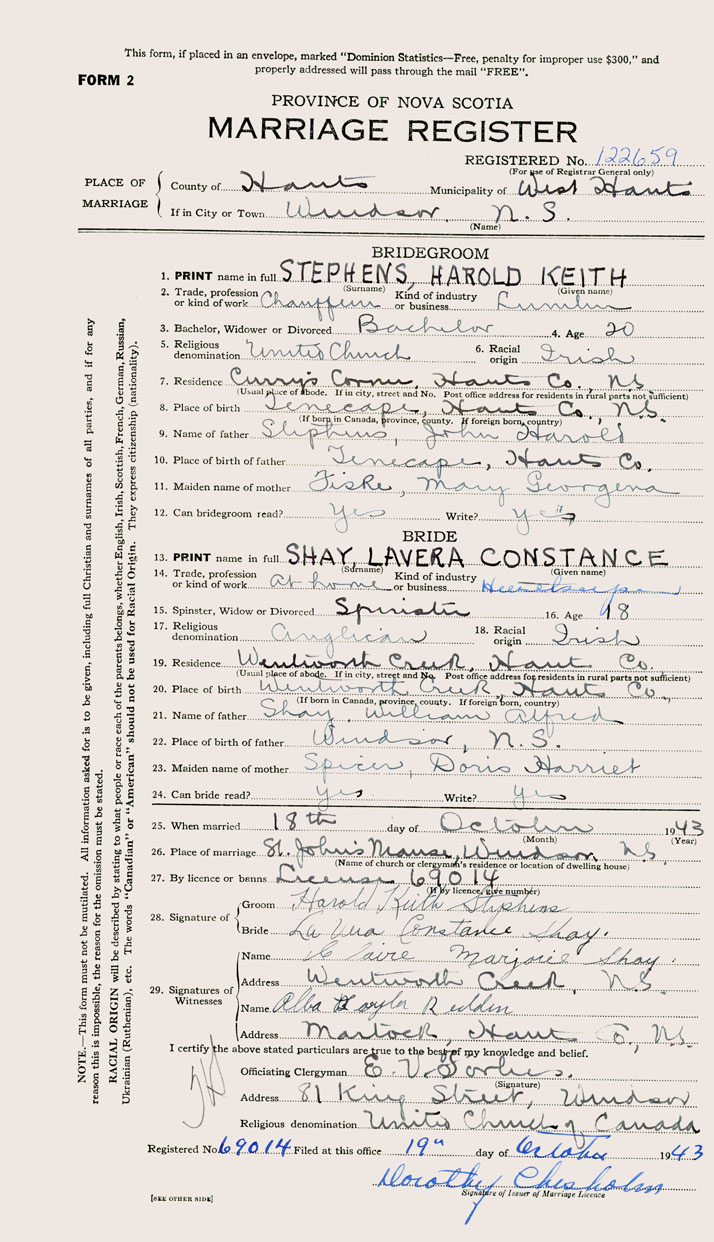 This form, if placed in an envelope, marked "Dominion Statistics—Free, penalty for improper use $300," and
properly addressed will pass through the mail "FREE".
FORM 2
PROVINCE OF NOVA SCOTIA
MARRIAGE REGISTER
REGISTERED No. 122659
(For use of Registrar General only)
PLACE OF MARRIAGE
County of Hants Municipality of West Hants
If in City or Town Windsor, N.S.
(Name)
BRIDEGROOM
1. PRINT name in full STEPHENS, HAROLD KEITH
(Surname) (Given name)
2. Trade, profession or kind of work Chauffeur Kind of industry or business Lumber
3. Bachelor, Widower or Divorced Bachelor 4. Age 20
5. Religious denomination United Church 6. Racial origin Irish
7. Residence Curry's Corner, Hants Co., N.S.
(Usual place of abode. If in city, street and No. Post office address for residents in rural parts not sufficient)
8. Place of birth Tenecape, Hants Co., N.S.
(If born in Canada, province, county. If foreign born, country)
9. Name of father Stephens, John Harold
10. Place of birth of father Tenecape, Hants Co.
11. Maiden name of mother Fiske, Mary Georgena
12. Can bridegroom read? Yes Write? yes
BRIDE
13. PRINT name in full SHAY, LAVERA CONSTANCE
(Surname) (Given name)
14. Trade, profession or kind of work At home Kind of industry or business
15. Spinster, Widow or Divorced Spinster 16. Age 18
17. Religious denomination Anglican 18. Racial origin Irish
19. Residence Wentworth Creek, Hants Co.
(Usual place of abode. If in city, street and No. Post office address for residents in rural parts not sufficient)
20. Place of birth Wentworth Creek, Hants Co.,
(If born in Canada, province, county. If foreign born, country)
21. Name of father Shay, William Alfred
22. Place of birth of father Windsor, N.S.
23. Maiden name of mother Spicer, Doris Harriet
24. Can bride read? yes Write? yes
25. When married 18th day of October 1943
(Month) (Year)
26. Place of marriage St. John's Manse, Windsor N.S.
(Name of church or clergyman's residence or location of dwelling house)
27. By licence or banns License 69014
(If by licence, give number)
28. Signature of
Groom Harold Keith Stephens
Bride La Vera Constance Shay.
29. Signatures of Witnesses
Name Claire Marjorie Shay.
Address Wentworth Creek, N.S.
Name Alba Redden
Address Martock, Hants Co., N.S.
I certify the above stated particulars are true to the best of my knowledge and belief.
Officiating Clergyman E. V. Forbes.
(Signature)
Address 81 King Street, Windsor
Religious denomination United Church of Canada
Registered No. 69014 Filed at this office 19th day of October 1943
Dorothy Chisholm
Signature of Issuer of Marriage Licence
[SEE OTHER SIDE]
NOTE.—This form must not be mutilated. All information asked for is to be given, including full Christian and surnames of all parties, and if for any
reason this is impossible, the reason for the omission must be stated.
RACIAL ORIGIN will be described by stating to what people or race each of the parents belongs, whether English, Irish, Scottish, French, German, Russian,
Ukrainian (Ruthenian), etc. The words "Canadian" or "American" should not be used for Racial Origin. They express citizenship (nationality).